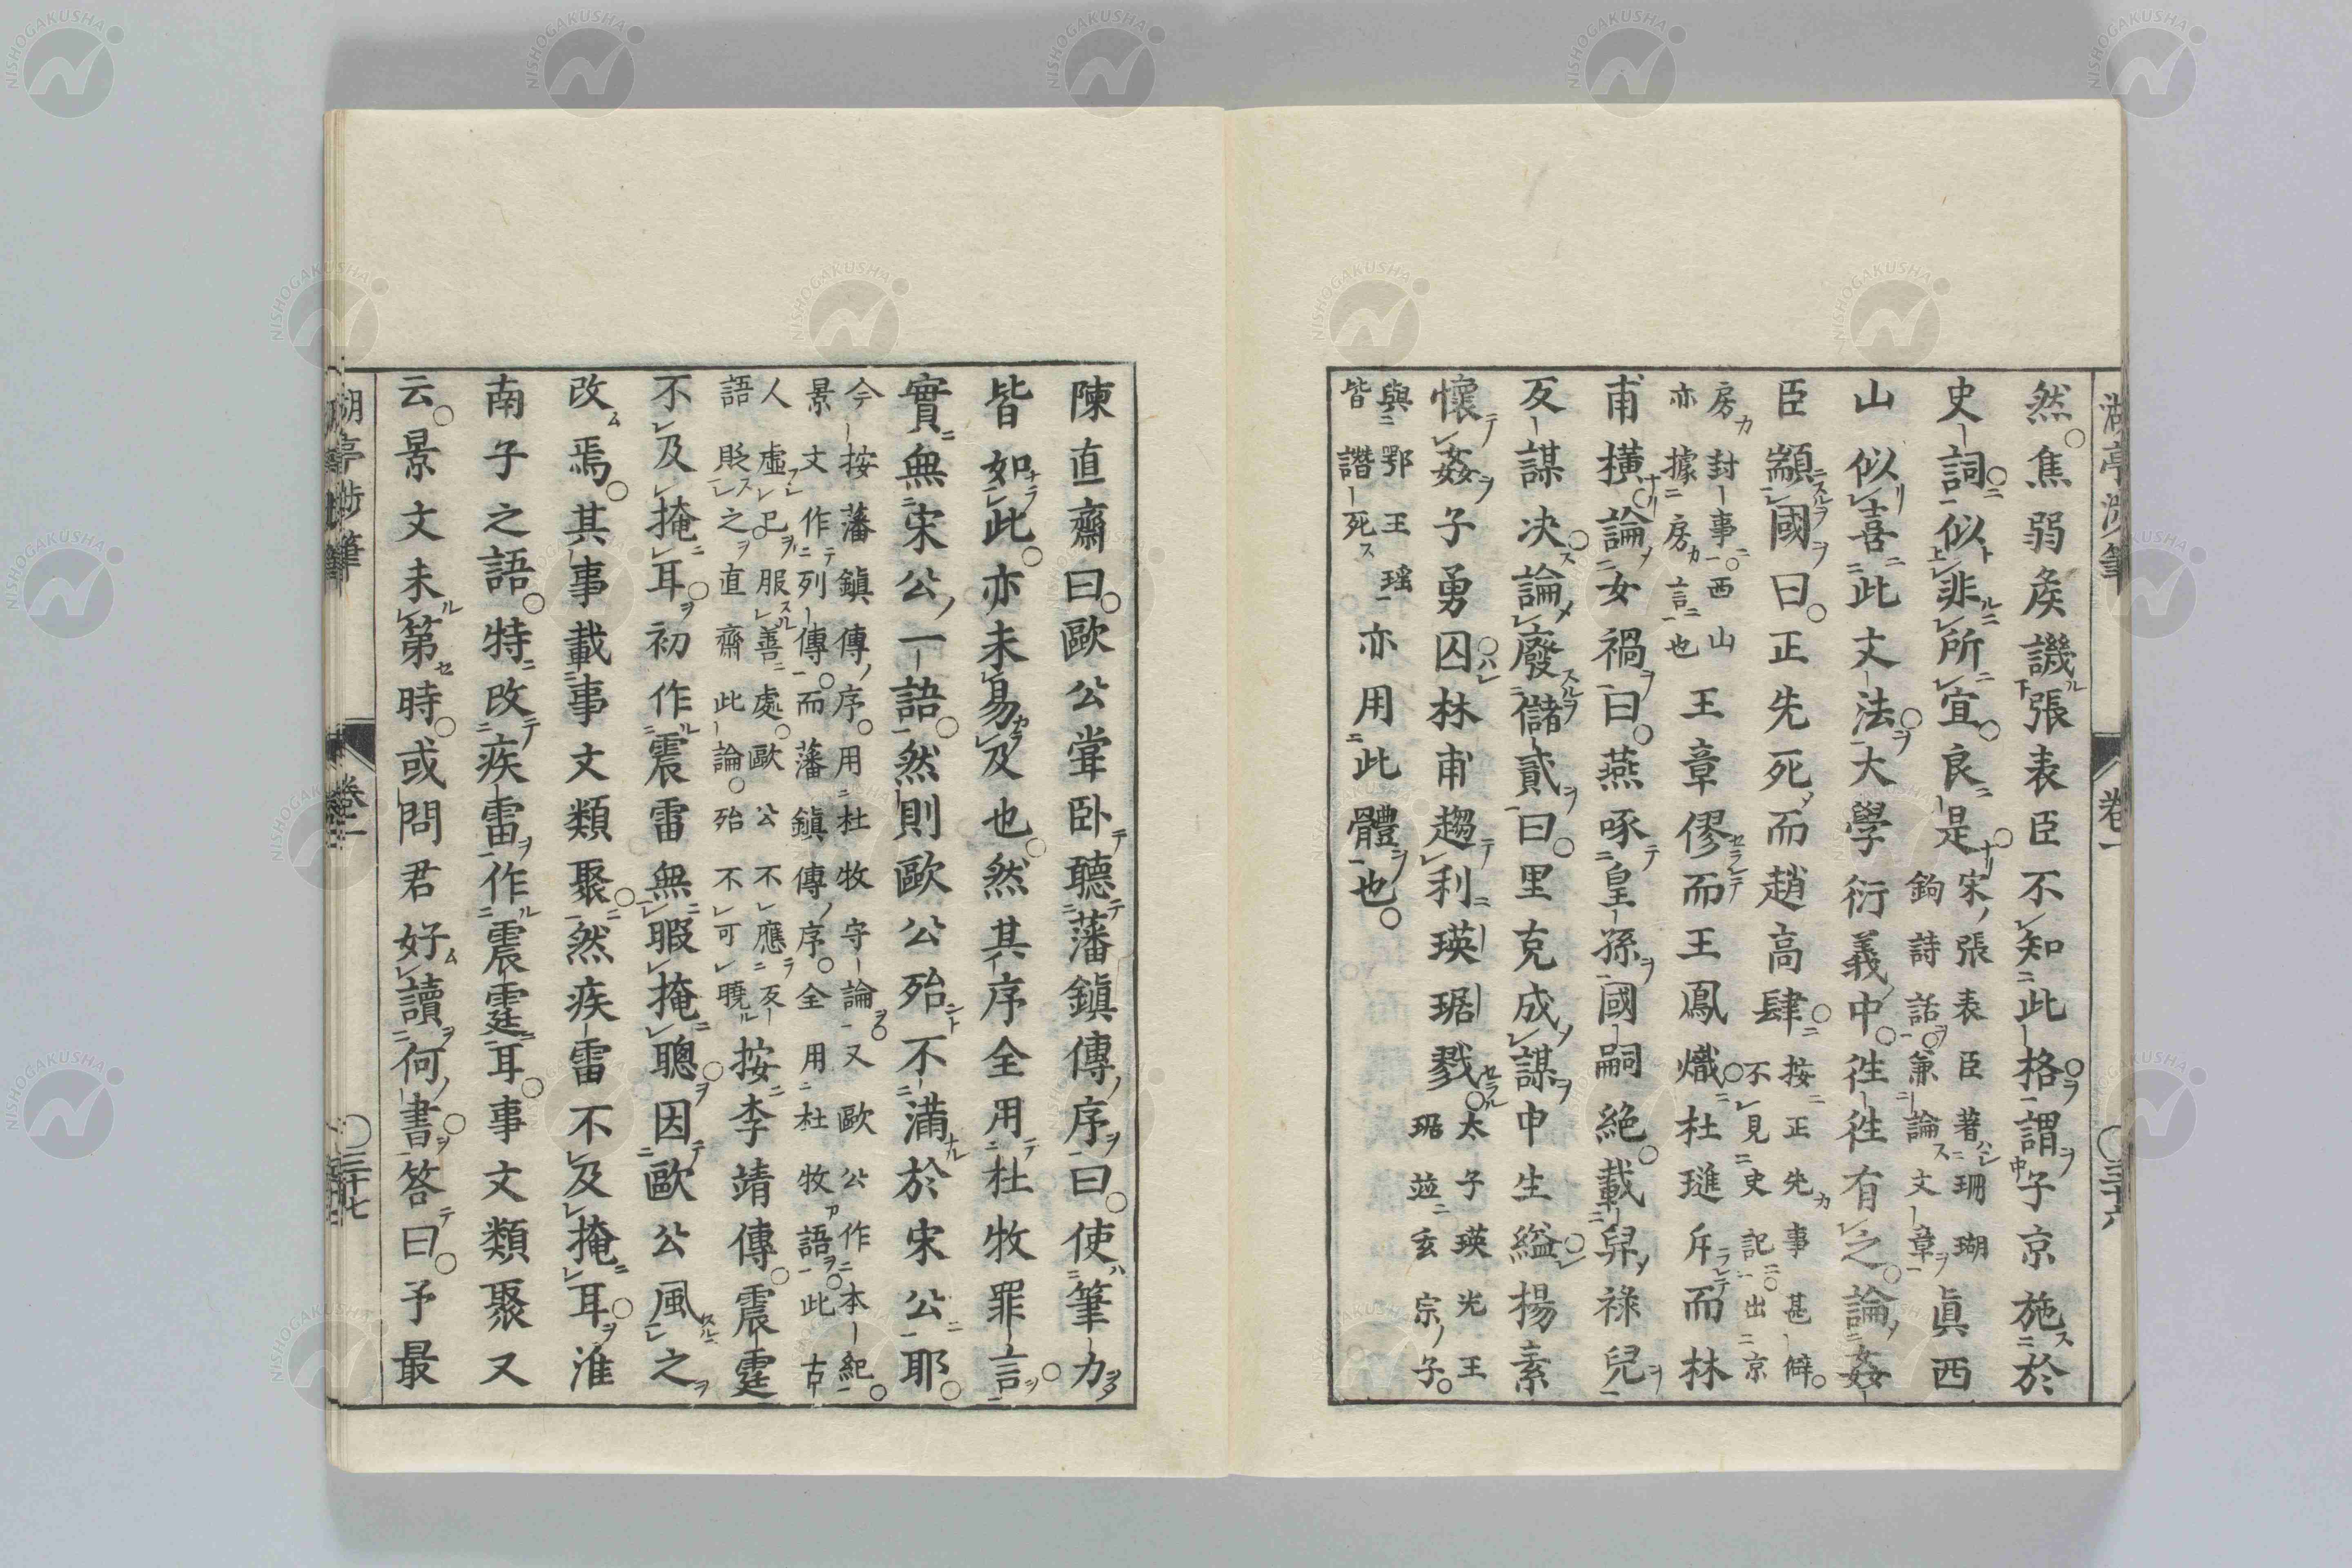 湖亭渉筆 卷一 〇三十六
然焦弱矦譏張表臣不知此格謂子京施於
史詞似非所宜良是宋張表臣著珊瑚鉤詩話兼論文章眞西
山似喜此丈法大學衍義中徃徃有之論姦
臣顓國曰正先死而趙高肆按正先事甚僻不見史記出京
房封事西山亦據房言也王章僇而王鳳熾杜璡斥而林
甫橫論女禍曰燕啄皇孫國嗣絶載舁祿兒
反謀决論廢儲貳曰里克成謀申生縊揚素
懷姦子勇囚林甫趨利瑛琚戮太子瑛光王琚竝玄宗子
與鄂王瑶皆譖死亦用此體也
陳直齋曰歐公甞卧聽藩鎭傳序曰使筆力
皆如此亦未易及也然其序全用杜牧罪言
實無宋公一語然則歐公殆不滿於宋公耶
今按藩鎭傳序用杜牧守論又歐公作本紀景文作列傳而藩鎭傳序全用杜牧語此古
人虛已服善處歐公不應反語貶之直齋此論殆不可曉按李靖傳震霆
不及掩耳初作震雷無暇掩聰因歐公風之
改焉其事載事文類聚然疾雷不及掩耳淮
南子之語特改疾雷作震霆耳事文類聚又
云景文未第時或問君好讀何書答曰予最
湖亭渉筆 卷一 〇三十七